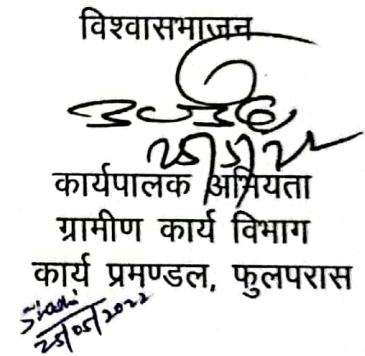 विश्वासभाजन
25/5/22
कार्यपालक अभियंता
ग्रामीण कार्य विभाग
कार्य प्रमण्डल, फुलपरास
25/05/2022